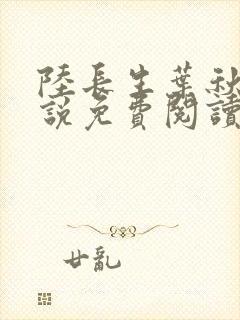 陸長生葉秋
說免費閱讀
廿亂